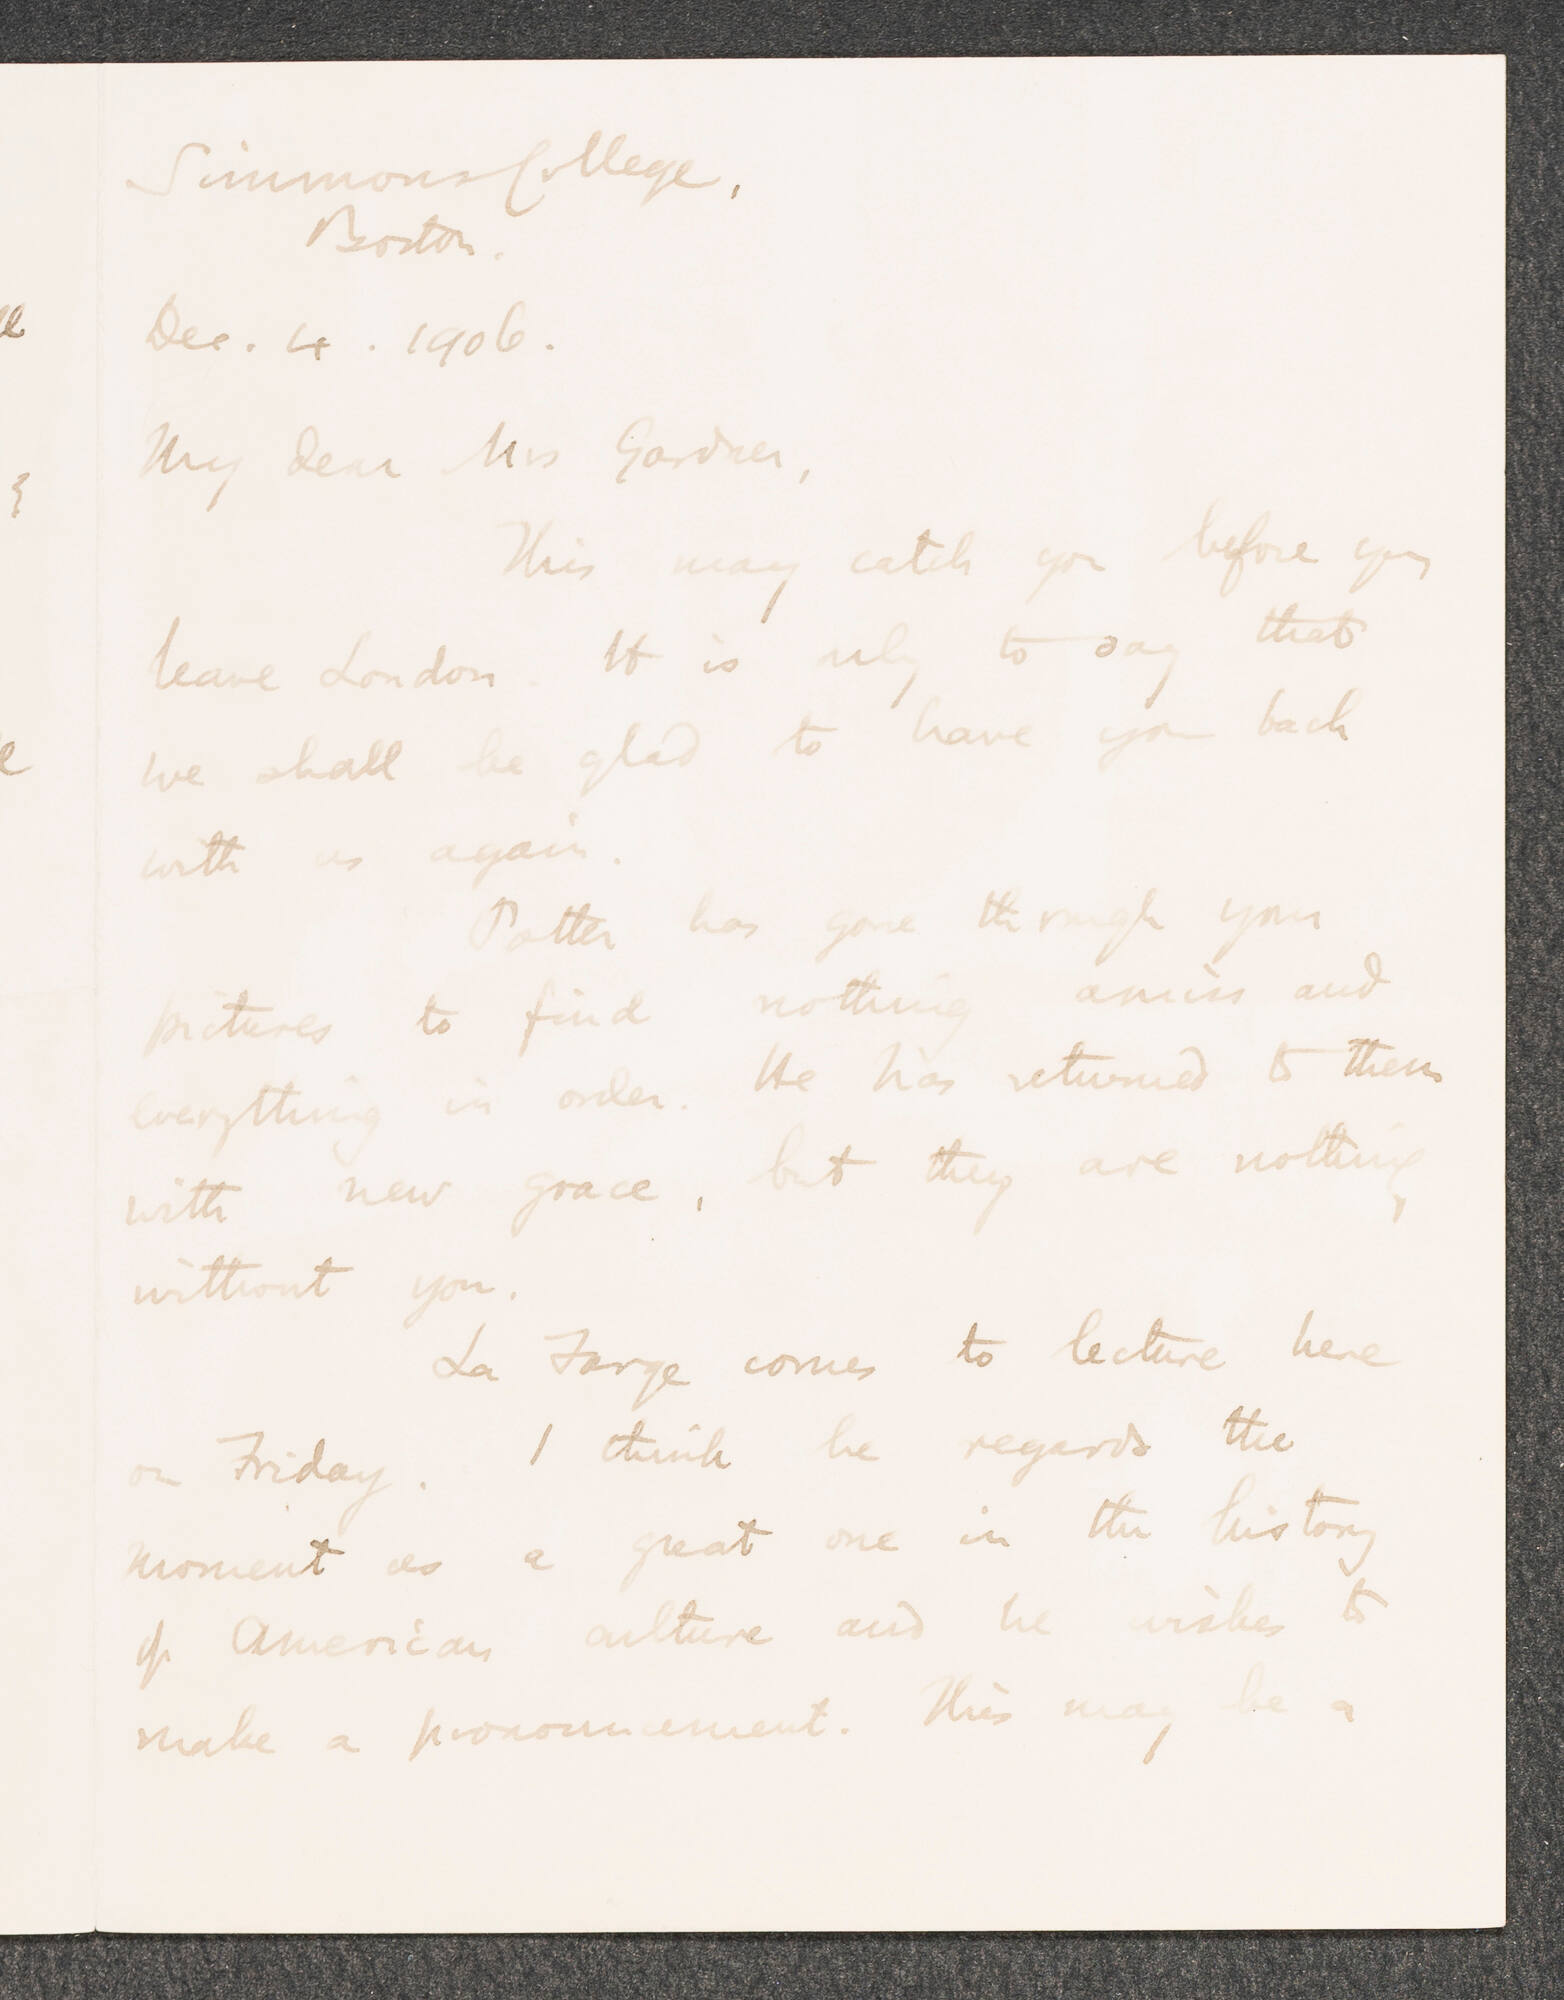 Simmons College,
Boston.
Dec. 4. 1906.
My dear Mrs Gardner,
This may catch you before you
leave London. It is only to say that
we shall be glad to have you back
with us again.
Potter has gone through your
pictures to find nothing amiss and
everything in order. He has returned to them
with new grace, but they are nothing,
without you.
La Farge comes to lecture here
on Friday. I think he regards the
moment as a great one in the history
of American culture and he wishes to
make a pronouncement. This may be a